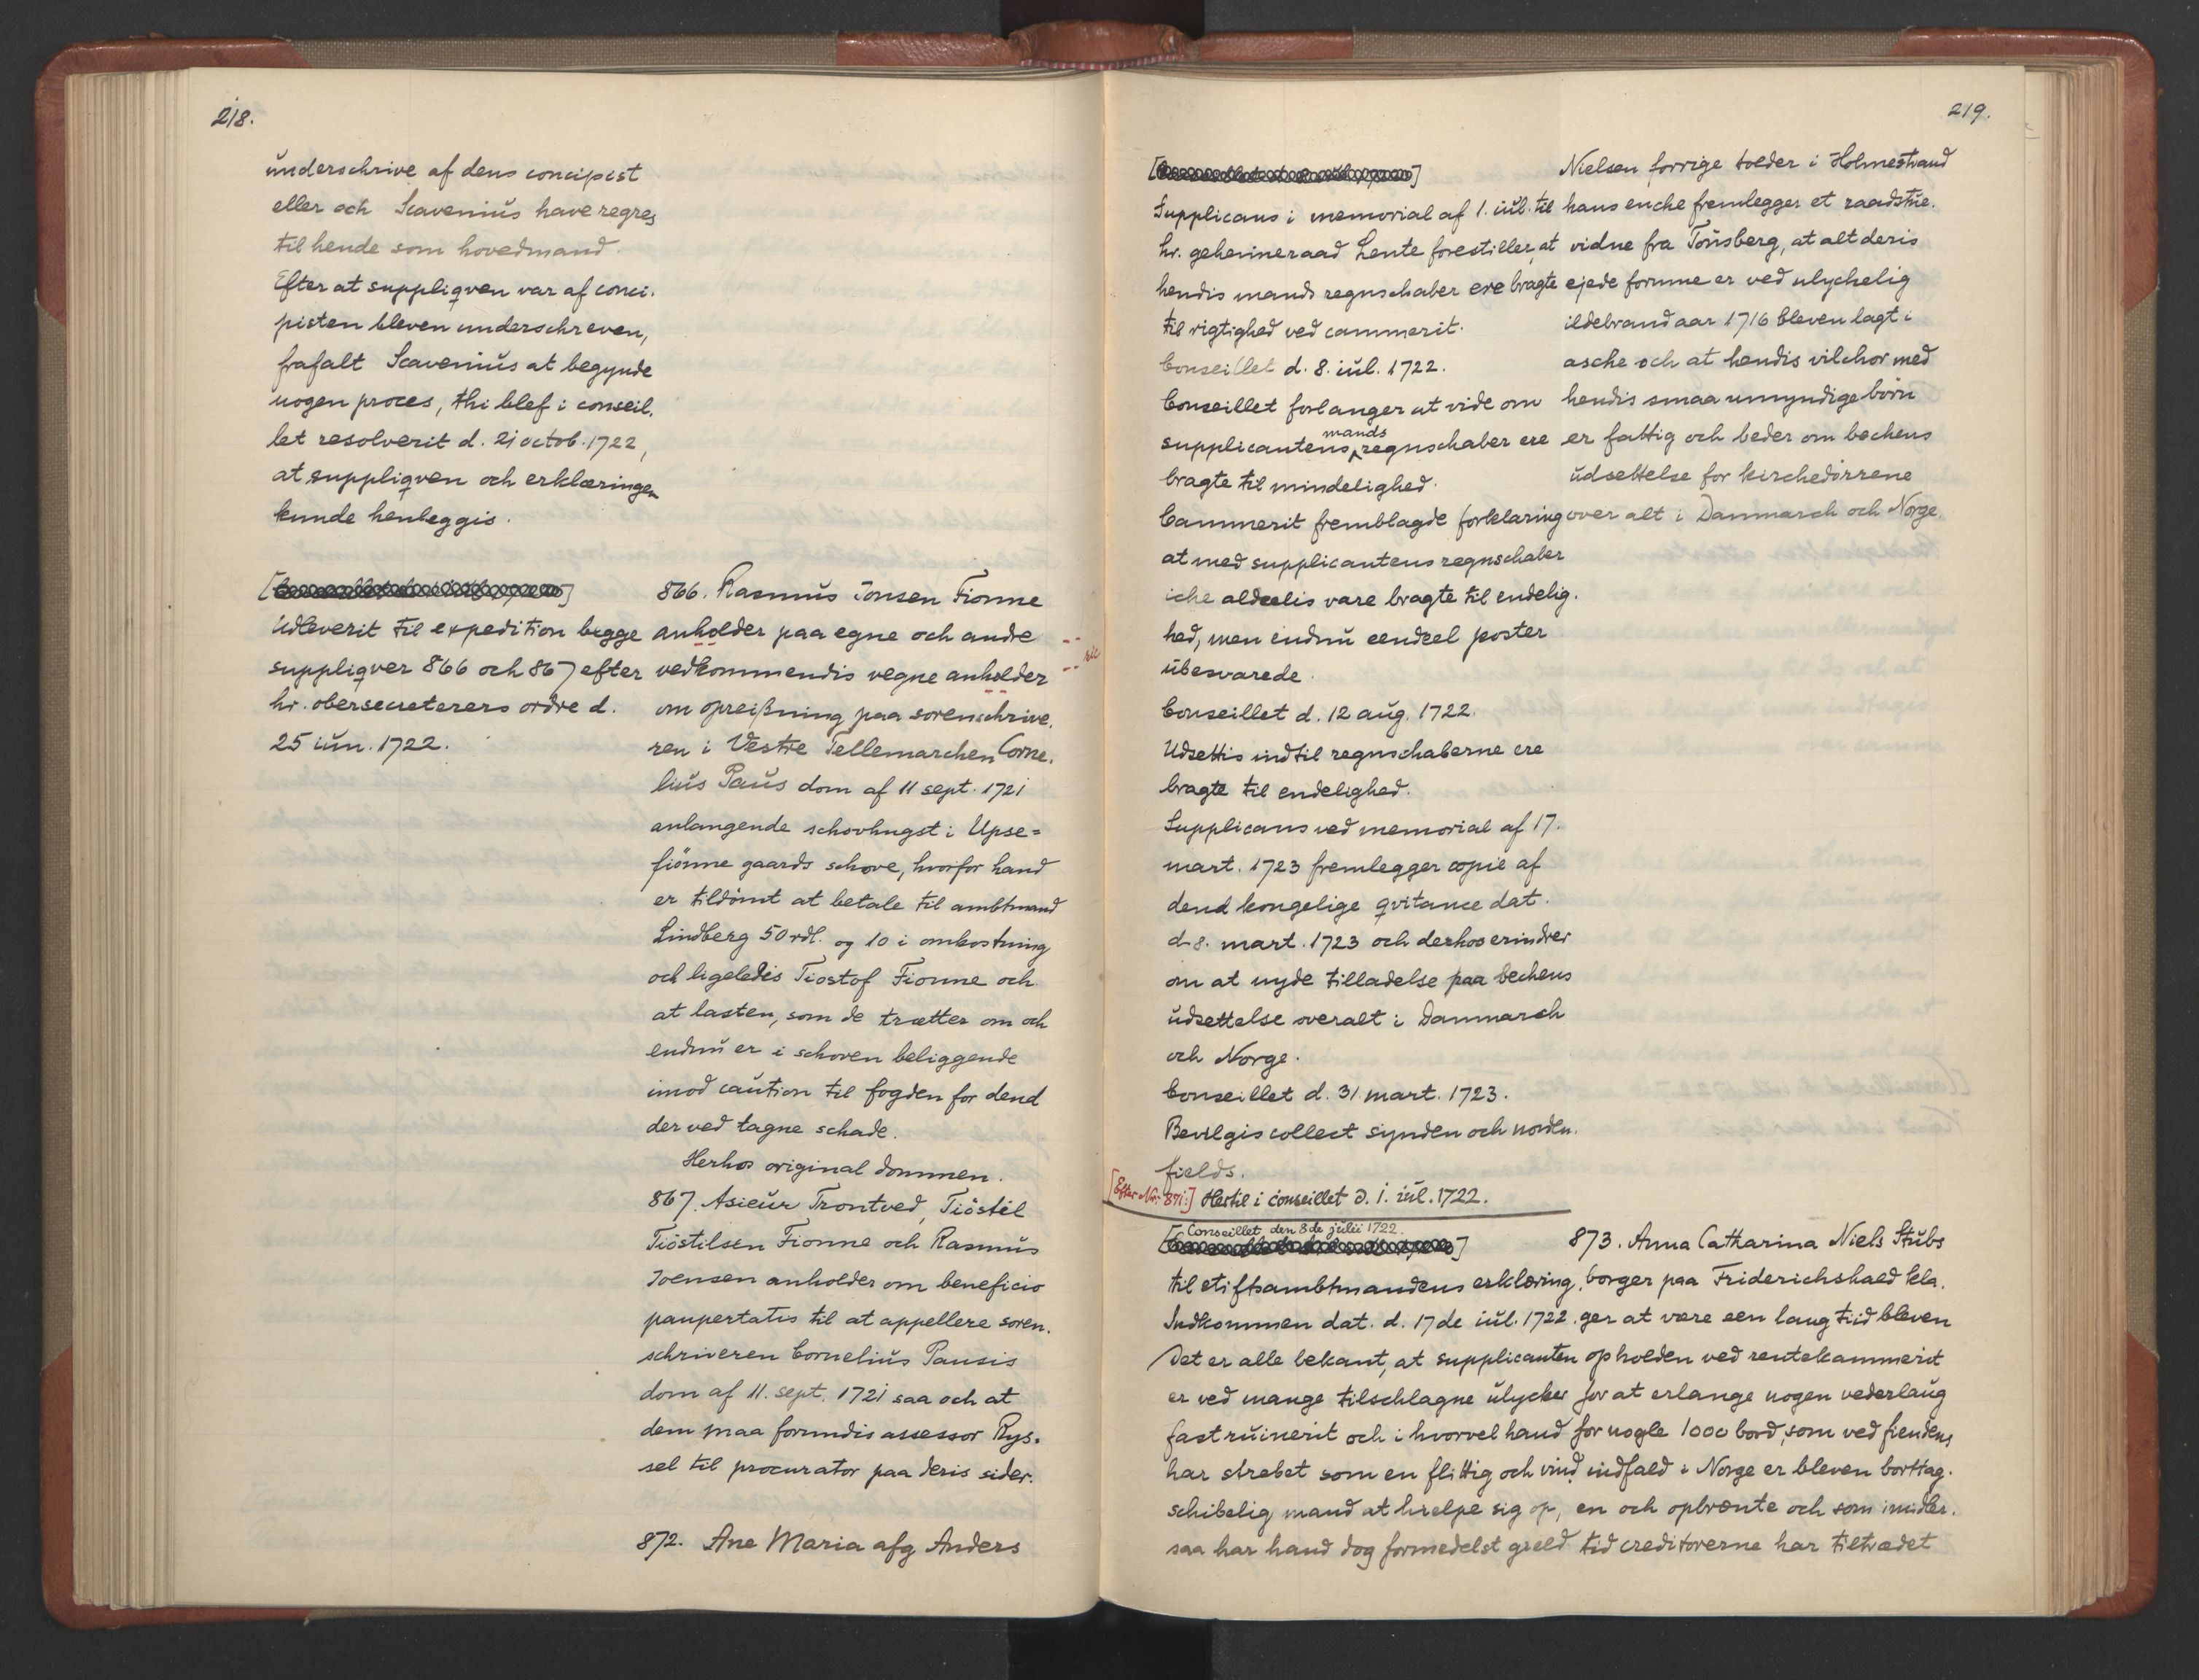 218.
underschrive af dens concipist
eller och Scavenius have regres
til hende som hovedmand.
Efter at suppliqven var af conci-
pisten bleven underschreven,
frafalt Scavenius at begynde
nogen proces, thi blef i conseil-
let resolverit d. 21 octob. 1722,
at suppliqven och erklæringen
kunde henleggis.
Udleverit til expedition begge
suppliqver 866 och 867 efter
hr. obersecreterers ordre d.
25 iun. 1722.
866. Rasmus Jonsen Fionne
anholder paa egne och andre
vedkommendis vegne anholder
sic
om opreißning paa sorenschrive-
ren i Vestre Tellemarchen Corne-
lius Paus dom af 11 sept. 1721
anlangende schovhugst i Upse-
fiönne gaards schove, hvorfor hand
er tildömt at betale til ambtmand
Lindberg 50 rdl. og 10 i omkostning
och ligeledis Tiostof Fionne och
at lasten, som de trætter om och
endnu er i schoven beliggende
imod caution til fogden for dend
derved tagne schade.
Herhos original dommen.
867. Asieur Trontved, Tiöstel
Tiöstilsen Fionne och Rasmus
Joensen anholder om beneficio
paupertatis til at appellere soren-
schriveren Cornelius Pausis
dom af 11. sept. 1721 saa och at
dem maa forundis assessor Rys-
sel til procurator paa deris sider.
872. Ane Maria afg Anders
219.
Supplicans i memorial af 1. iul. til
hr. geheimeraad Lente forestiller, at
hendis mands regnschaber ere bragte
til rigtighed ved cammerit.
Conseillet d. 8. iul. 1722.
Conseillet forlanger at vide om
supplicantens mands regnschaber ere
bragte til mindelighed.
Cammerit fremblagde forklaring
at med supplicantens regnschaber
iche aldeelis vare bragte til endelig-
hed, men endnu eendeel poster
ubesvarede.
Conseillet d. 12 aug. 1722.
Udsettis indtil regnschaberne ere
bragte til endelighed.
Supplicans ved memorial af 17.
mart. 1723 fremlegger copie af
dend kongelige qvitance dat.
d. 8. mart. 1723 och derhos erindrer
om at nyde tilladelse paa bechens
udsettelse overalt i Danmarch
och Norge.
Conseillet d. 31 mart. 1723.
Bevilgis collect synden och norden-
fields.
[Efter Nr. 871:] Hertil i conseillet d. 1. iul. 1722.
Nielsen forrige tolder i Holmestrand
hans enche fremlegger et raadstue-
vidne fra Tönsberg, at alt deris
ejede formue er ved ulychelig
ildebrand aar 1716 bleven lagt i
asche och at hendis vilchor med
hendis smaa umyndige börn
er fattig och beder om bechens
udsettelse for kirchedörrene
over alt i Danmarch och Norge.
Conseillet den 8de julii 1722.
til stiftsambtmandens erklæring.
Indkommen dat. d. 17de iul. 1722.
Det er alle bekant, at supplicanten
er ved mange tilschlagne ulycker
fast ruinerit och i hvorvel hand
har strebet som en flittig och vind-
schibelig mand at hielpe sig op,
saa har hand dog formedelst gield
873. Anna Catharina Niels Stubs
borger paa Friderichshald kla-
ger at være een lang tiid bleven
opholden ved rentekammerit
for at erlange nogen vederlaug
for nogle 1000 bord, som ved fiendens
indfald i Norge er bleven borttag-
en och opbrænte och som imidler-
tid creditorerne har tiltrædet